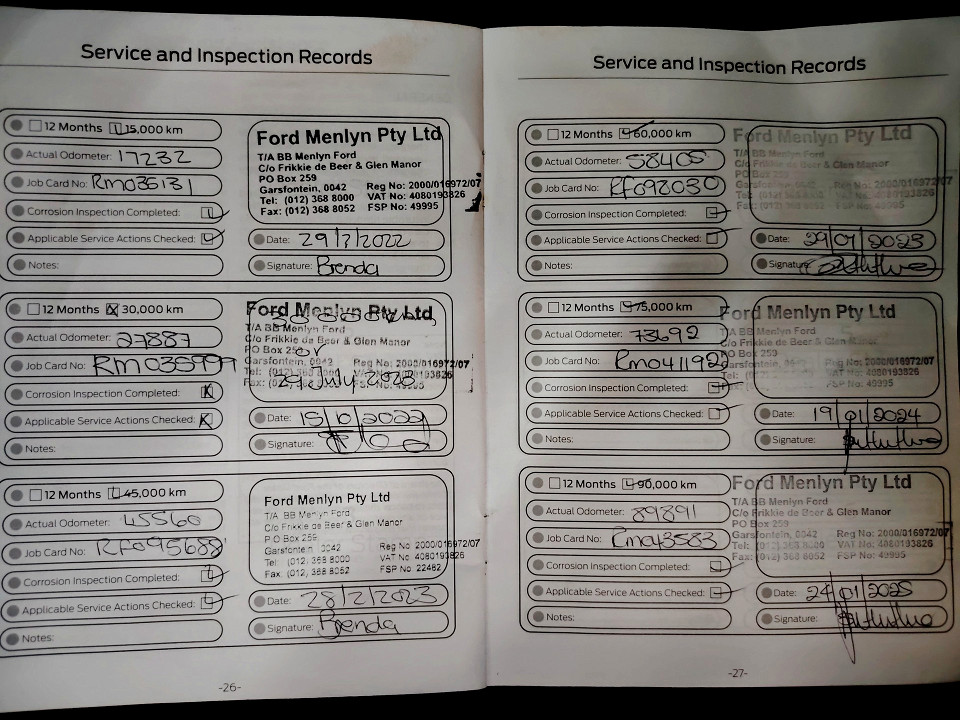 Service and Inspection Records
12 Months 15,000 km
Actual Odometer: 17232
Job Card No: Rm035131
Corrosion Inspection Completed:
Applicable Service Actions Checked:
Notes:
Ford Menlyn Pty Ltd
T/A BB Menlyn Ford
C/o Frikkie de Beer & Glen Manor
PO Box 259
Garsfontein, 0042 Reg No: 2000/016972/07
Tel: (012) 368 8000 VAT No: 4080193826
Fax: (012) 368 8052 FSP No: 49995
Date: 29/7/2022
Signature: Brenda
12 Months 30,000 km
Actual Odometer: 27887
Job Card No: Rm035999
Corrosion Inspection Completed:
Applicable Service Actions Checked:
Notes:
Ford Menlyn Pty Ltd
T/A BB Menlyn Ford
C/o Frikkie de Beer & Glen Manor
PO Box 259 or
Garsfontein, 0042 Reg No: 2000/016972/07
Tel: VAT No: 4080193826
Fax: July
Date:
Signature:
12 Months 45,000 km
Actual Odometer: 45560
Job Card No: RF095688
Corrosion Inspection Completed:
Applicable Service Actions Checked:
Notes:
Ford Menlyn Pty Ltd
T/A BB Menlyn Ford
C/o Frikkie de Beer & Glen Manor
PO Box 259
Garsfontein, 0042 Reg No: 2000/016972/07
Tel: (012) 368 8000 VAT No: 4080193826
Fax: (012) 368 8052 FSP No: 22482
Date: 28/2/2023
Signature: Brenda
-26-
Service and Inspection Records
12 Months 60,000 km
Actual Odometer: 58405
Job Card No: Rf092030
Corrosion Inspection Completed:
Applicable Service Actions Checked:
Notes:
Ford Menlyn Pty Ltd
T/A BB Menlyn Ford
C/o Frikkie de Beer & Glen Manor
PO Box 259
Garsfontein, 0042 Reg No: 2000/016972/07
Tel: (012) 368 8000 VAT No: 4080193826
Fax: (012) 368 8052 FSP No: 49995
Date: 29/07/2023
Signature:
12 Months 75,000 km
Actual Odometer: 73692
Job Card No: Rm041192
Corrosion Inspection Completed:
Applicable Service Actions Checked:
Notes:
Ford Menlyn Pty Ltd
T/A BB Menlyn Ford
C/o Frikkie de Beer & Glen Manor
PO Box 259
Garsfontein, Reg No: 2000/016972/07
Tel: VAT No: 4080193826
Fax: FSP No: 49995
Date: 19/01/2024
Signature:
12 Months 90,000 km
Actual Odometer: 89891
Job Card No: Rm043583
Corrosion Inspection Completed:
Applicable Service Actions Checked:
Notes:
Ford Menlyn Pty Ltd
T/A BB Menlyn Ford
C/o Frikkie de Beer & Glen Manor
PO Box 259
Garsfontein, 0042 Reg No: 2000/016972/07
Tel: (012) 368 8000 VAT No: 4080193826
Fax: (012) 368 8052 FSP No: 49995
Date: 24/01/2025
Signature:
-27-